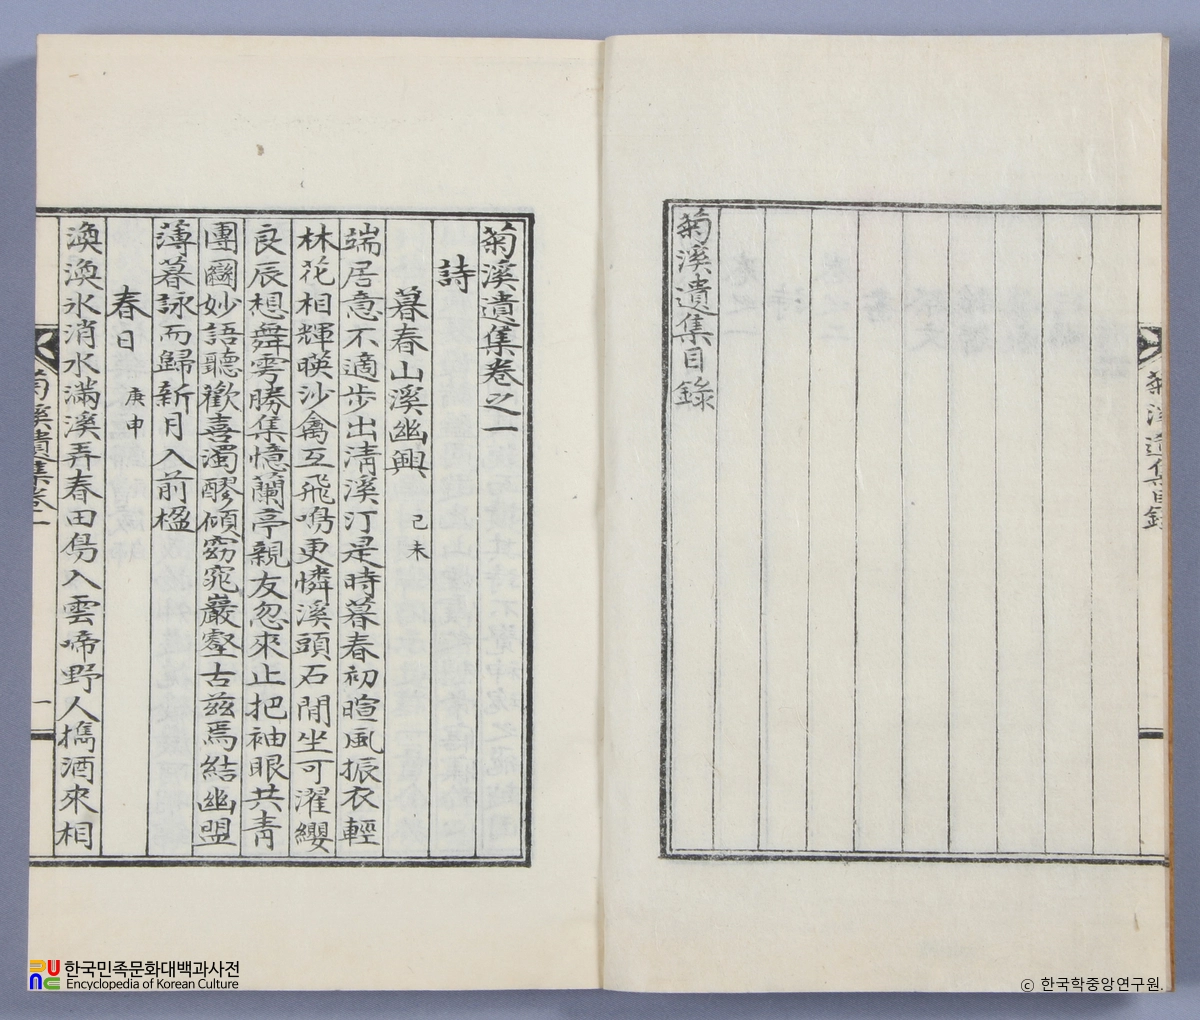 菊溪遺集目錄
菊溪遺集目錄
菊溪遺集卷之一
詩
暮春山溪幽興 己未
端居意不適步出淸溪汀是時暮春初暄風振衣輕
林花相輝暎沙禽互飛鳴更憐溪頭石閒坐可濯纓
良辰想舞雩勝集憶蘭亭親友忽來止把袖眼共靑
團圞妙語聽歡喜濁醪傾窈窕巖壑古玆焉結幽盟
薄暮詠而歸新月入前楹
春日 庚申
渙渙氷消水滿溪弄春田鳥入雲啼野人携酒來相
菊溪遺集卷一
一
한국민족문화대백과사전
Encyclopedia of Korean Culture
ⓒ 한국학중앙연구원.